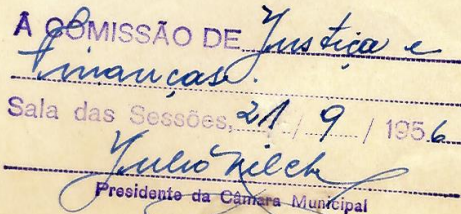 À COMISSÃO DE Justiça e
Finanças.
Sala das Sessões, 21 / 9 / 1956
Julio
Presidente da Câmara Municipal